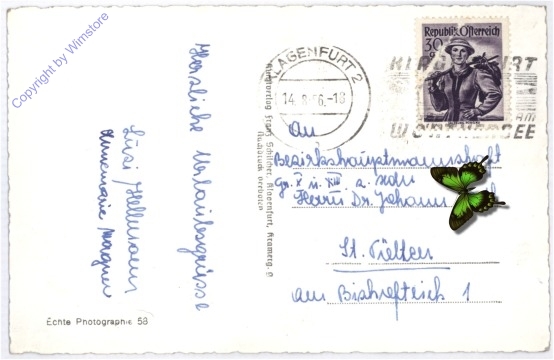 Copyright by Wimstore
Herzliche Urlaubsgrüsse
Lusi Hellmann
Annemarie Wagner
Echte Photographie 58
Kunstverlag Franz Schilcher, Klagenfurt, Kramerg. 9
Nachdruck verboten
KLAGENFURT 2
14.8.56.-18
Republik Österreich
30
KLAGENFURT
AM
WÖRTHERSEE
An
Bezirkshauptmannschaft
Gr. X u. XIII a.
Herrn Dr. Johann
St. Pölten
am Bischofteich 1